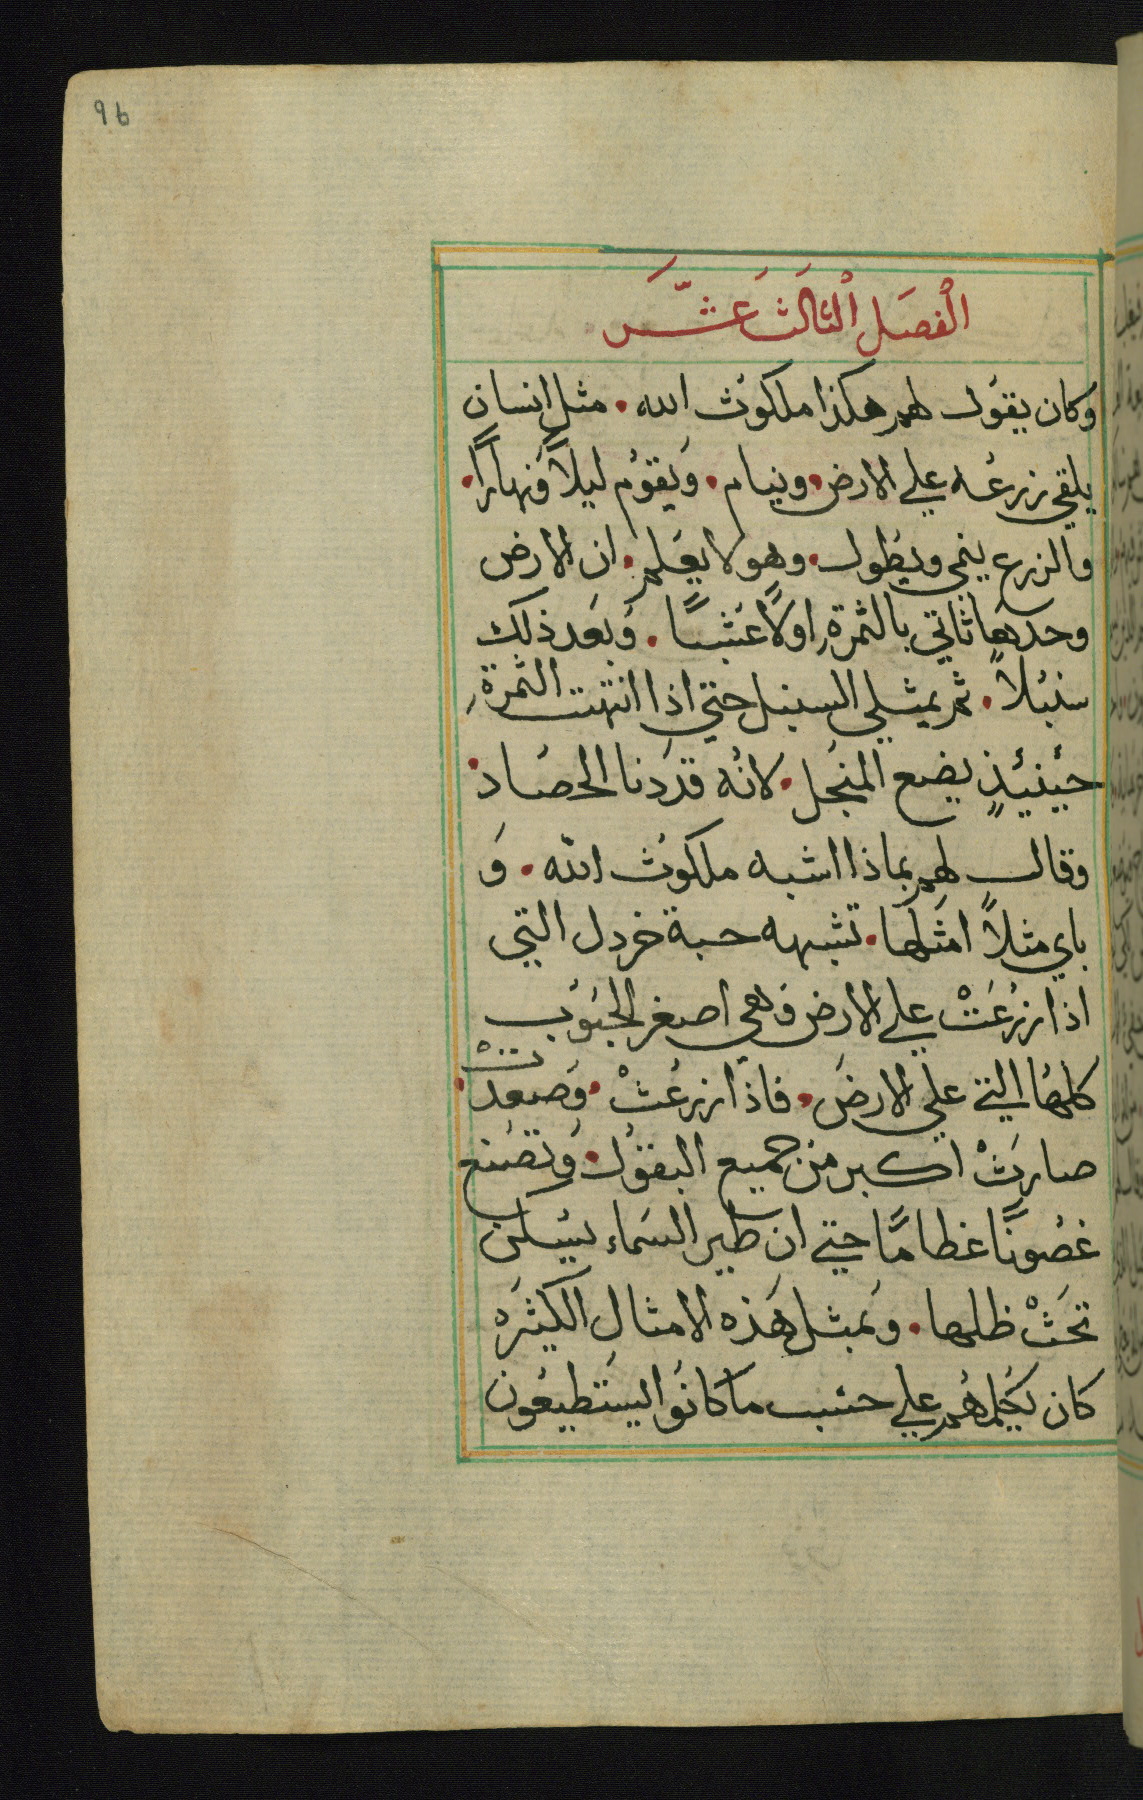 96
الفصَل الثالثَ عشّر
وكان يقوُل لهم هكذا ملكوُث الله . مثل انسان
يلقي زرعُه علي الارض . وينام . وَيقوُم ليلاً وَنهاراً .
والزرع ينمي ويطُول . وهو لا يعَلم . ان الارض
وحدهَا ثاتي بالثمرة اولاً عَشباً . وَبعَد ذلك
سنبُلاً . ثم يمثلي السنبل حتي اذا انتهت الثمرة
حيُنيُذٍ يضع المنجُل . لانُه قد دَنا الحصَاد .
وقال لهم بماذا اشبه ملكوُث الله . وَ
باي مثلاً امثَلها . تشبه حبة خردل التي
اذا زرُعَتْ علي الارض وَهي اصغر الحبُوُب
كلهَا التي علي الارضَ . فاذا زرعُثْ . وَصعدتْ .
صارَثْ اكبر من جميع البقوُل . وَتصَنع
غصُوناً عظاماً حتي ان طير السَماء يسُكن
تحَثْ ظلها . وَبمثل هَذه الامثال الكثيرَه
كان يكُلمهُم علي حسَب ما كانوُا يسَتطيعُون